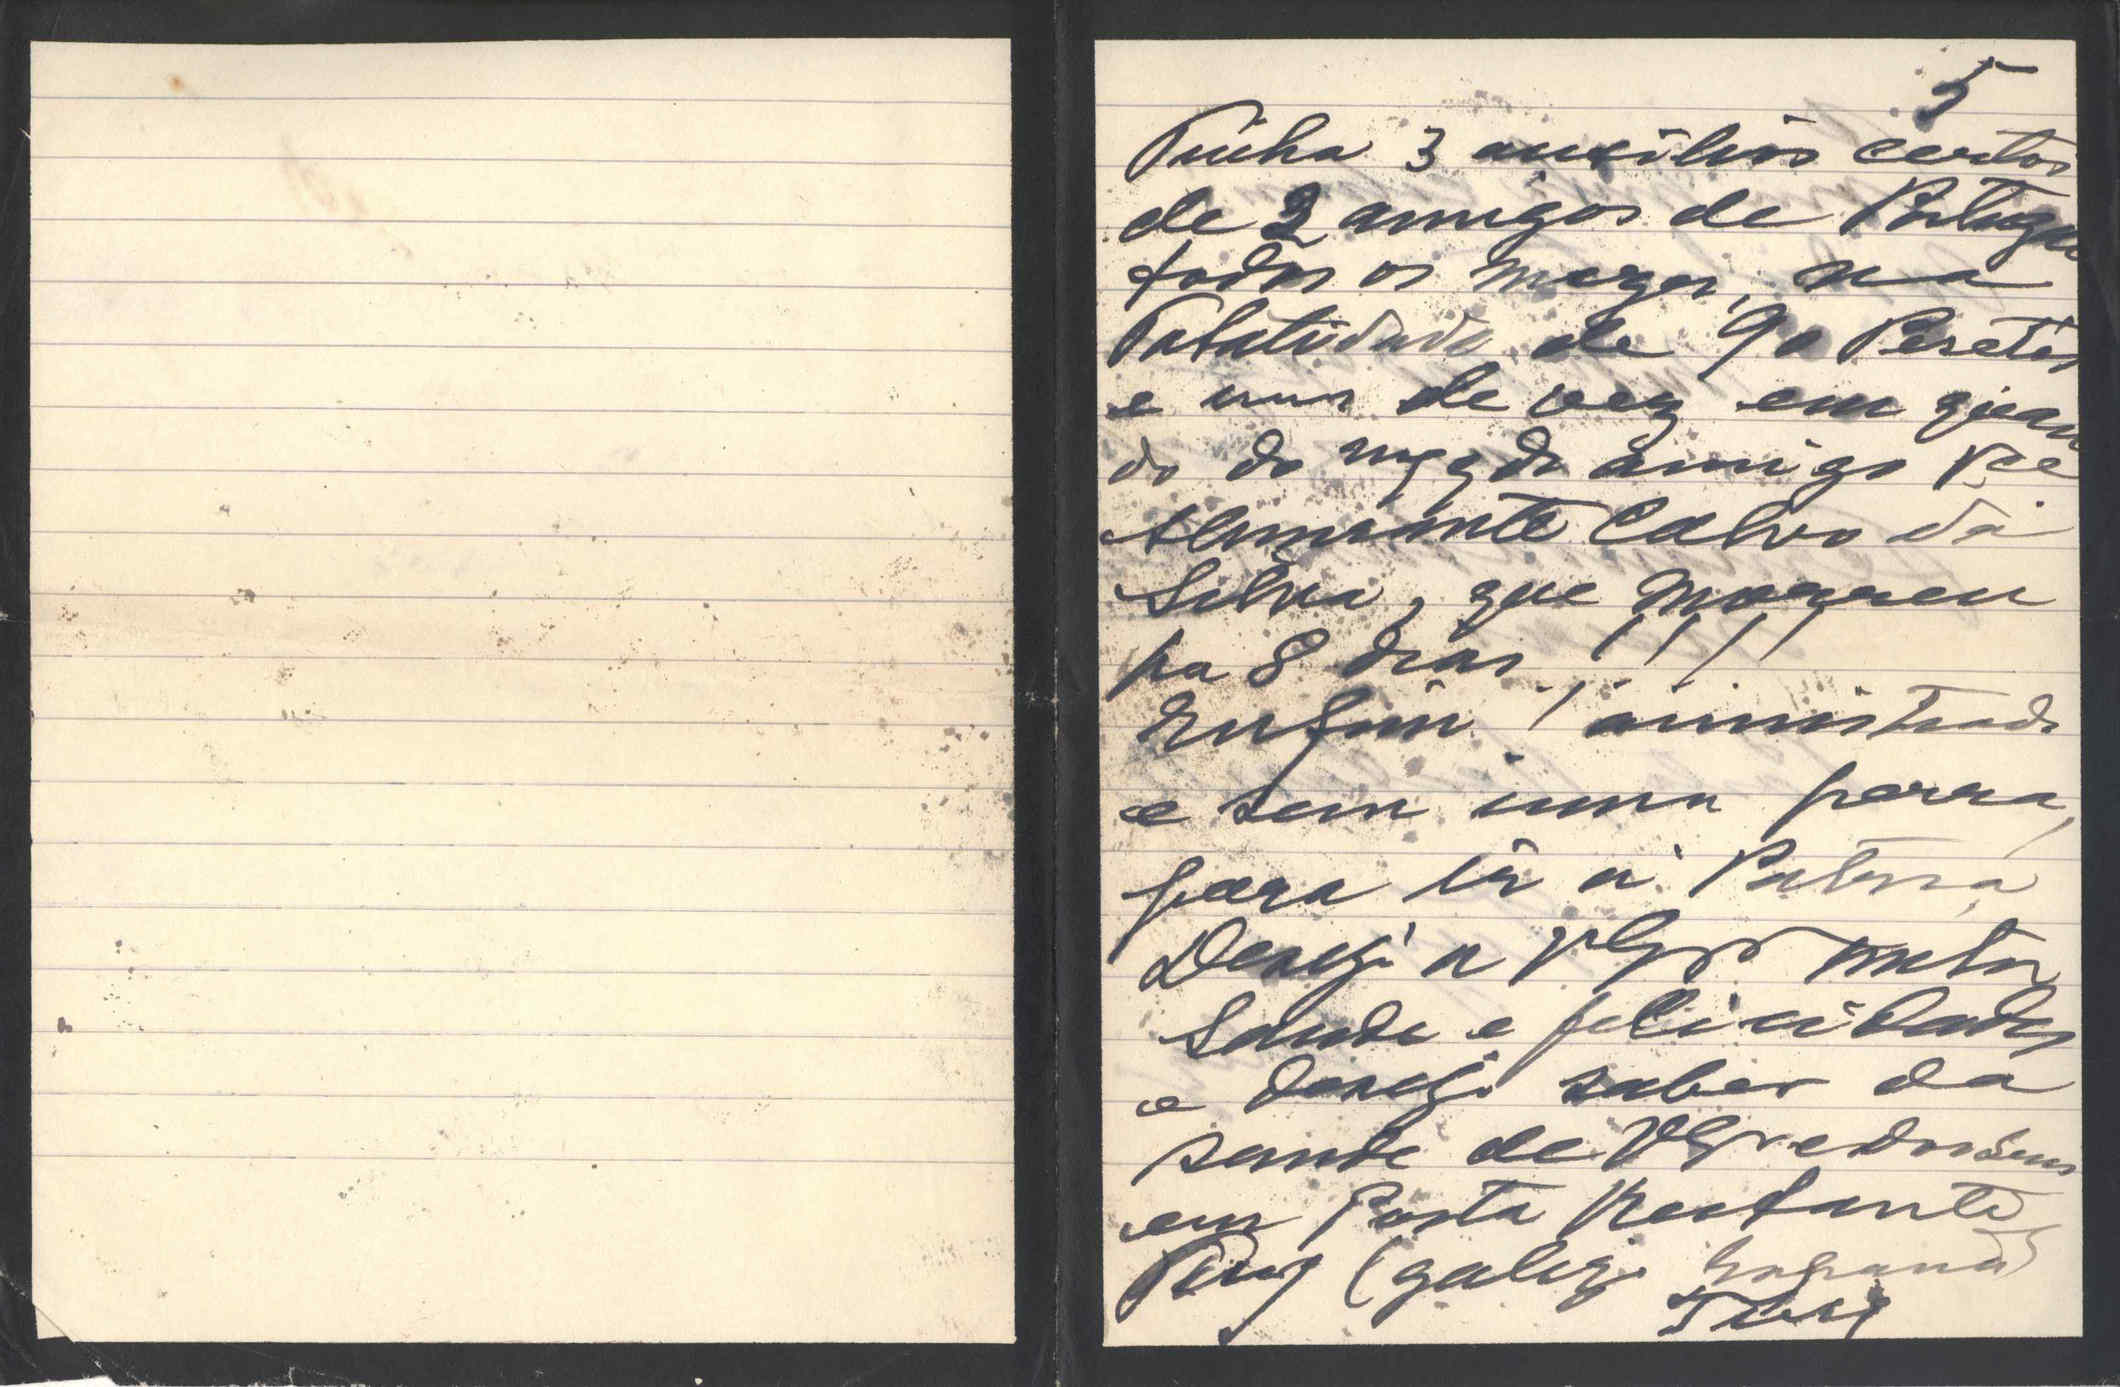 5
Tinha 3 auxilios certos
de 2 amigos de Portugal
todos os mezes, na
totalidade de 90 Pesetas
e um de vez em quan
do do amigo
Almirante Calvo da
Silva, que morreu
ha 8 dias !!!!
Enfim!
e sem uma perra,
para ir á Patria
Desejo a VExª
Saude e felicidades
e desejo saber da
saude de VExª e dos seus
em Posta Restante
Tuy (galiza Espanha)
Tuy